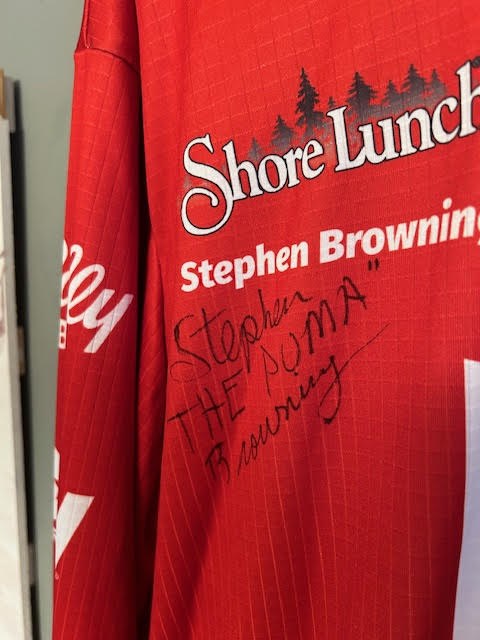 Shore Lunch
Stephen Browning
Stephen
THE PUMA"
Browning